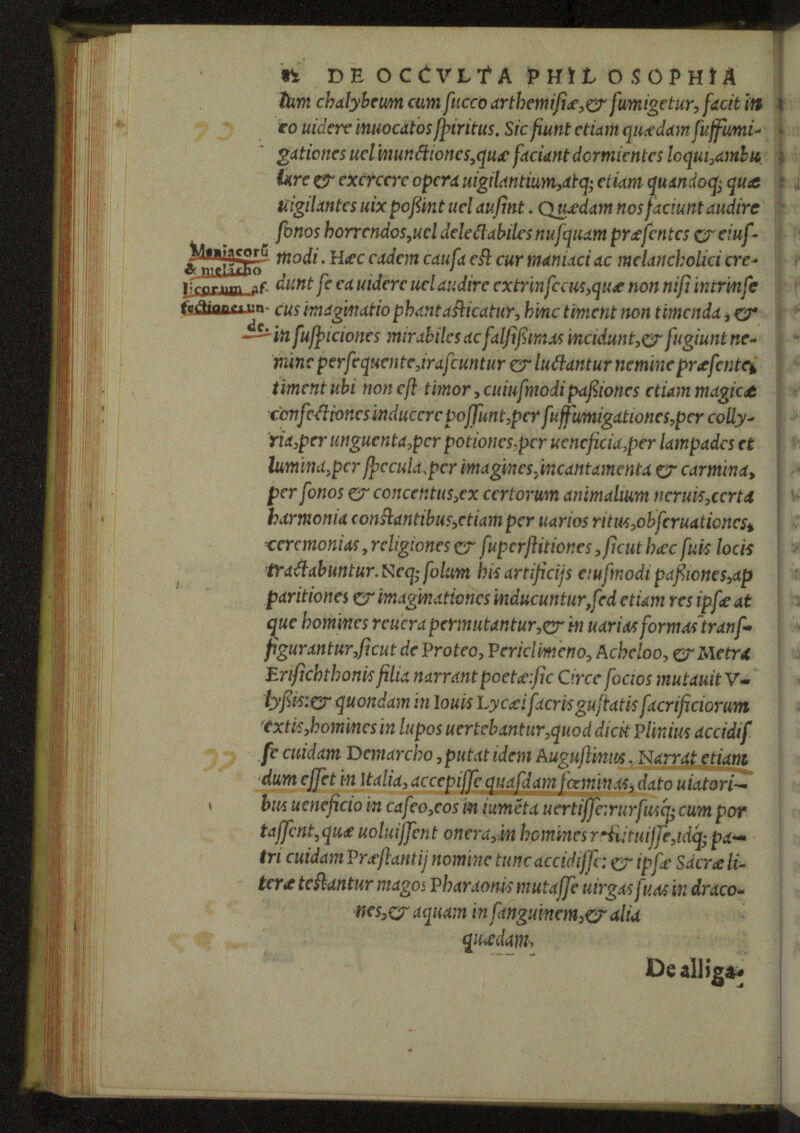 DE OCCVLTA PHILOSOPHIA
tum chalybeum cum succo arthemisiæ,& fumigetur, facit in
eo uidere inuocatos spiritus. Sic fiunt etiam quædam suffumi-
gationes uel inunctiones,quæ faciant dormientes loqui,ambu
lare & exercere opera uigilantium,atq; etiam quandoq; quæ
uigilantes uix possint uel ausint. Quædam nos faciunt audire
sonos horrendos,uel delectabiles nusquam præsentes & eius-
Maniacorū
& melācho
licorum af-
fectiones un-
de.
modi. Hæc eadem causa est cur maniaci ac melancholici cre-
dunt se ea uidere uel audire extrinsecus,quæ non nisi intrinse
cus imaginatio phantasticatur, hinc timent non timenda, &
in suspiciones mirabiles ac falsissimas incidunt,& fugiunt ne-
mine persequente,irascuntur & luctantur nemine præsente,
timent ubi non est timor, cuiusmodi passiones etiam magicæ
confectiones inducere possunt,per suffumigationes,per colly-
ria,per unguenta,per potiones,per ueneficia,per lampades et
lumina,per specula,per imagines,incantamenta & carmina,
per sonos & concentus,ex certorum animalium neruis,certa
harmonia constantibus,etiam per uarios ritus,obseruationes,
ceremonias, religiones & superstitiones, sicut hæc suis locis
tractabuntur. Neq; solum his artificijs eiusmodi passiones,ap
paritiones & imaginationes inducuntur,sed etiam res ipsæ at
que homines reuera permutantur,& in uarias formas trans-
figurantur,sicut de Proteo, Periclimeno, Acheloo, & Metra
Erisichthonis filia narrant poetæ:sic Circe socios mutauit V-
lyssis:& quondam in Iouis Lycæi sacris gustatis sacrificiorum
extis,homines in lupos uertebantur,quod dicit Plinius accidis
se cuidam Demarcho, putat idem Augustinus. Narrat etiam
dum esset in Italia, accepisse quasdam fœminas, dato uiatori-
bus ueneficio in caseo,eos in iumēta uertisse:rursusq; cum por
tassent, quæ uoluissent onera, in homines restituisse,idq; pa-
tri cuidam Præstantij nomine tunc accidisse: & ipsæ Sacræ li-
teræ testantur magos Pharaonis mutasse uirgas suas in draco-
nes,& aquam in sanguinem,& alia
quædam.
De alliga-